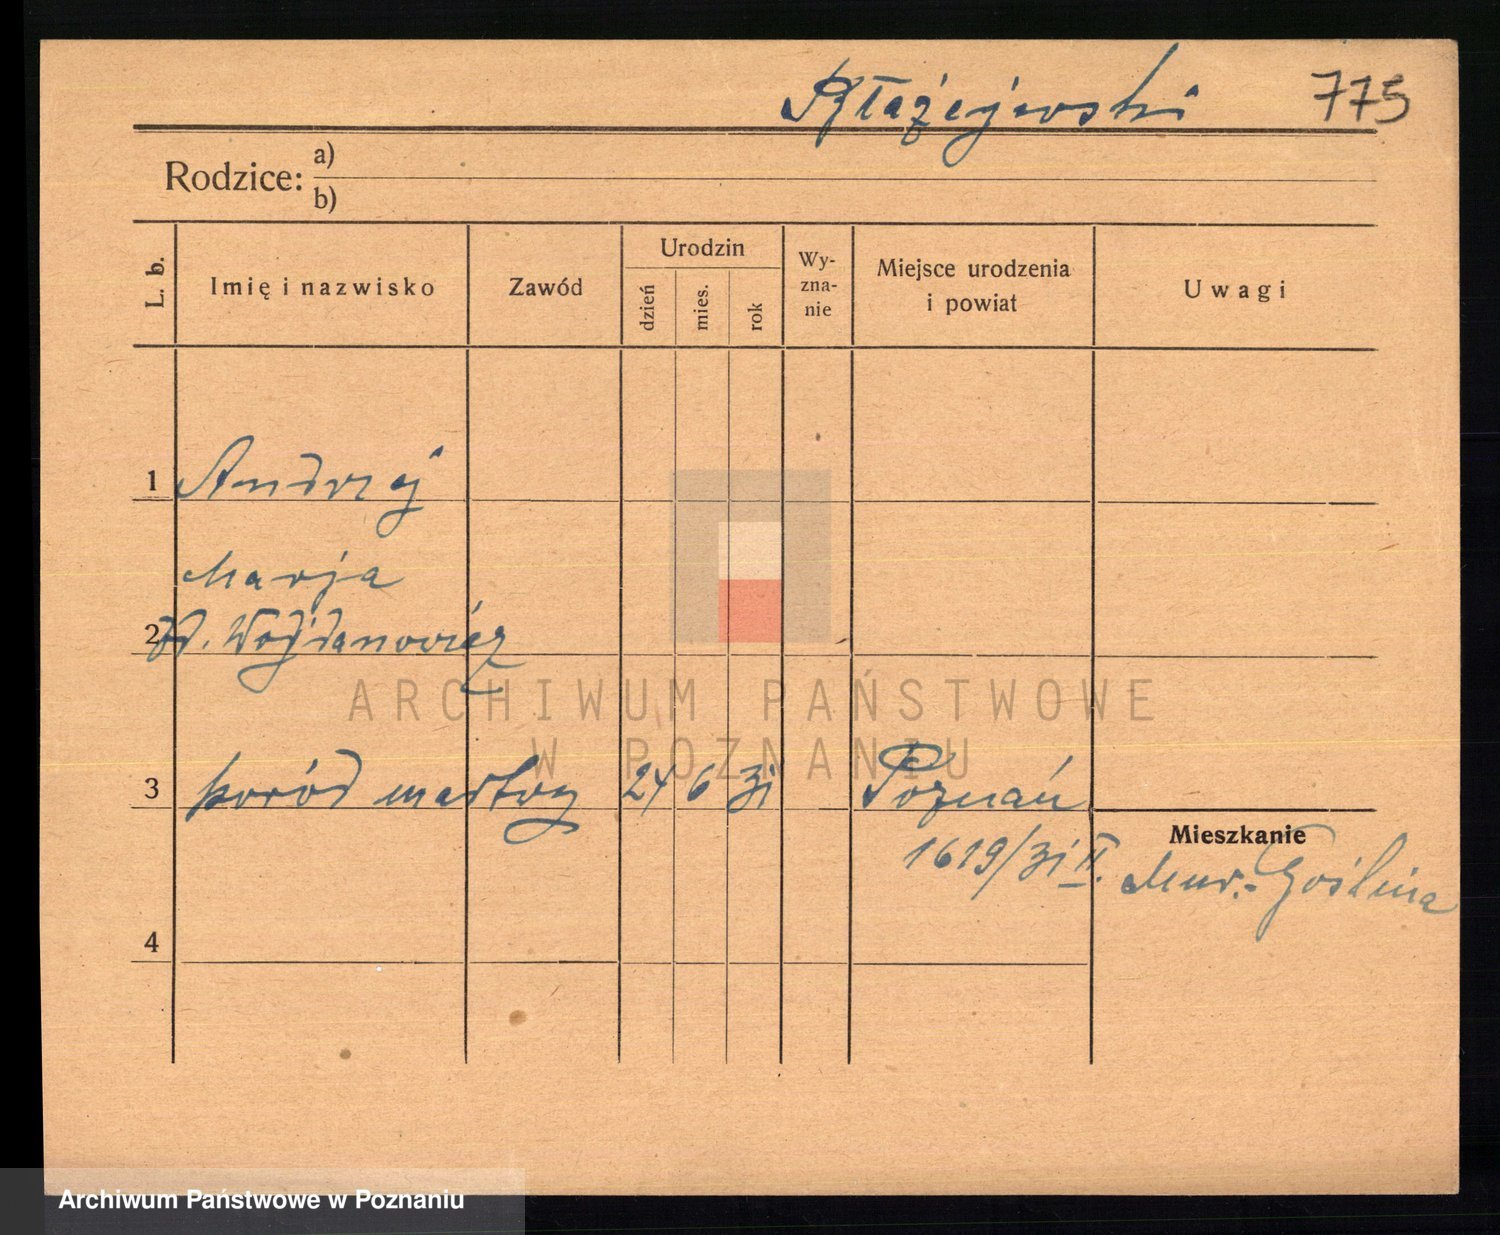 Błażejewski 775
Rodzice: a)
b)
L. b. Imię i nazwisko Zawód Urodzin dzień mies. rok Wy-zna-nie Miejsce urodzenia i powiat Uwagi
1 Andrzej
Marja
2 Wojdanowicz
3 poród martwy 24 6 31 Poznań
Mieszkanie
1619/31 II. Mur.-Goślina
4
ARCHIWUM PAŃSTWOWE
W POZNANIU
Archiwum Państwowe w Poznaniu